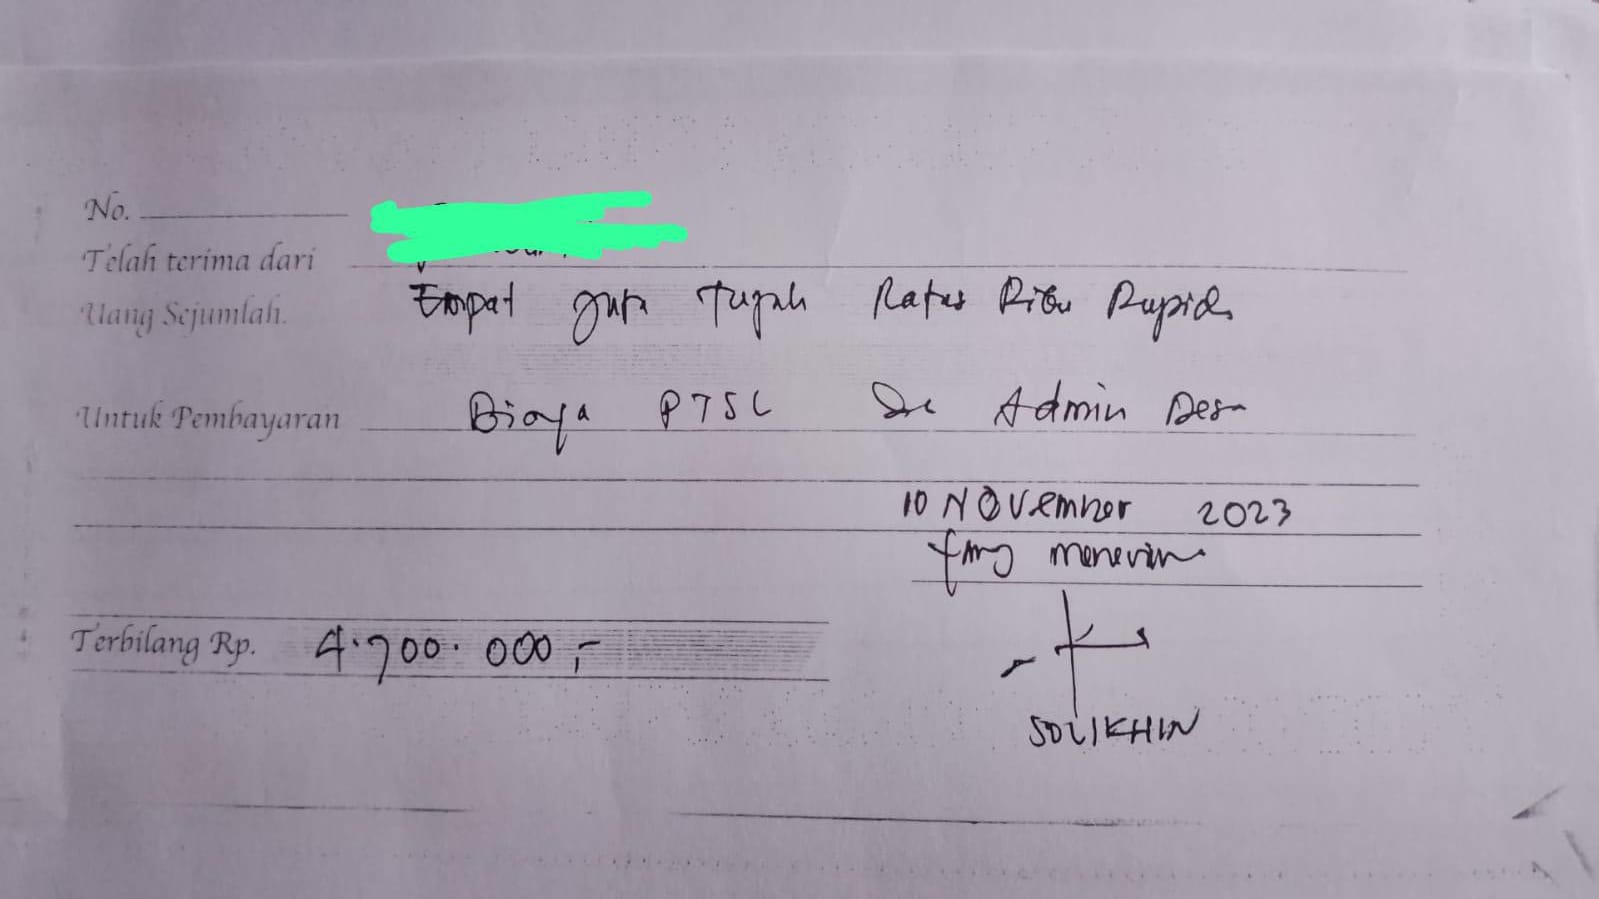 No.
Telah terima dari
Uang Sejumlah. Empat Juta Tujuh Ratus Ribu Rupiah
Untuk Pembayaran Biaya PTSL Admin Desa
10 NOVember 2023
Yang menerima
Terbilang Rp. 4.700.000,-
SOLIKHIN